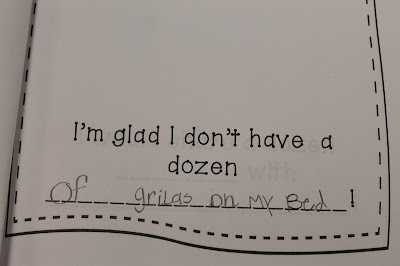 I'm glad I don't have a
dozen
Of grilas on My Bed!